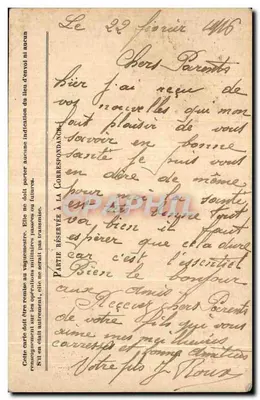 Le 22 février 1916
Chers Parents
hier j'ai reçu de
vos nouvelles qui mon
fait plaisir de vous
savoir en bonne
santé je puis vous
en dire de même
pour la santé
va bien il faut
espérer que cela dure
car c'est l'essentiel
Bien le bonjour
aux amis
Recevez chers Parents
de votre fils qui vous
aime mes meilleures
caresses et bonnes amitiés
Votre fils J Roux
PARTIE RÉSERVÉE À LA CORRESPONDANCE
Cette carte doit être remise au vaguemestre. Elle ne doit porter aucune indication du lieu d'envoi ni aucun
renseignement sur les opérations militaires passées ou futures.
S'il en était autrement, elle ne serait pas transmise.
CPAPHIL